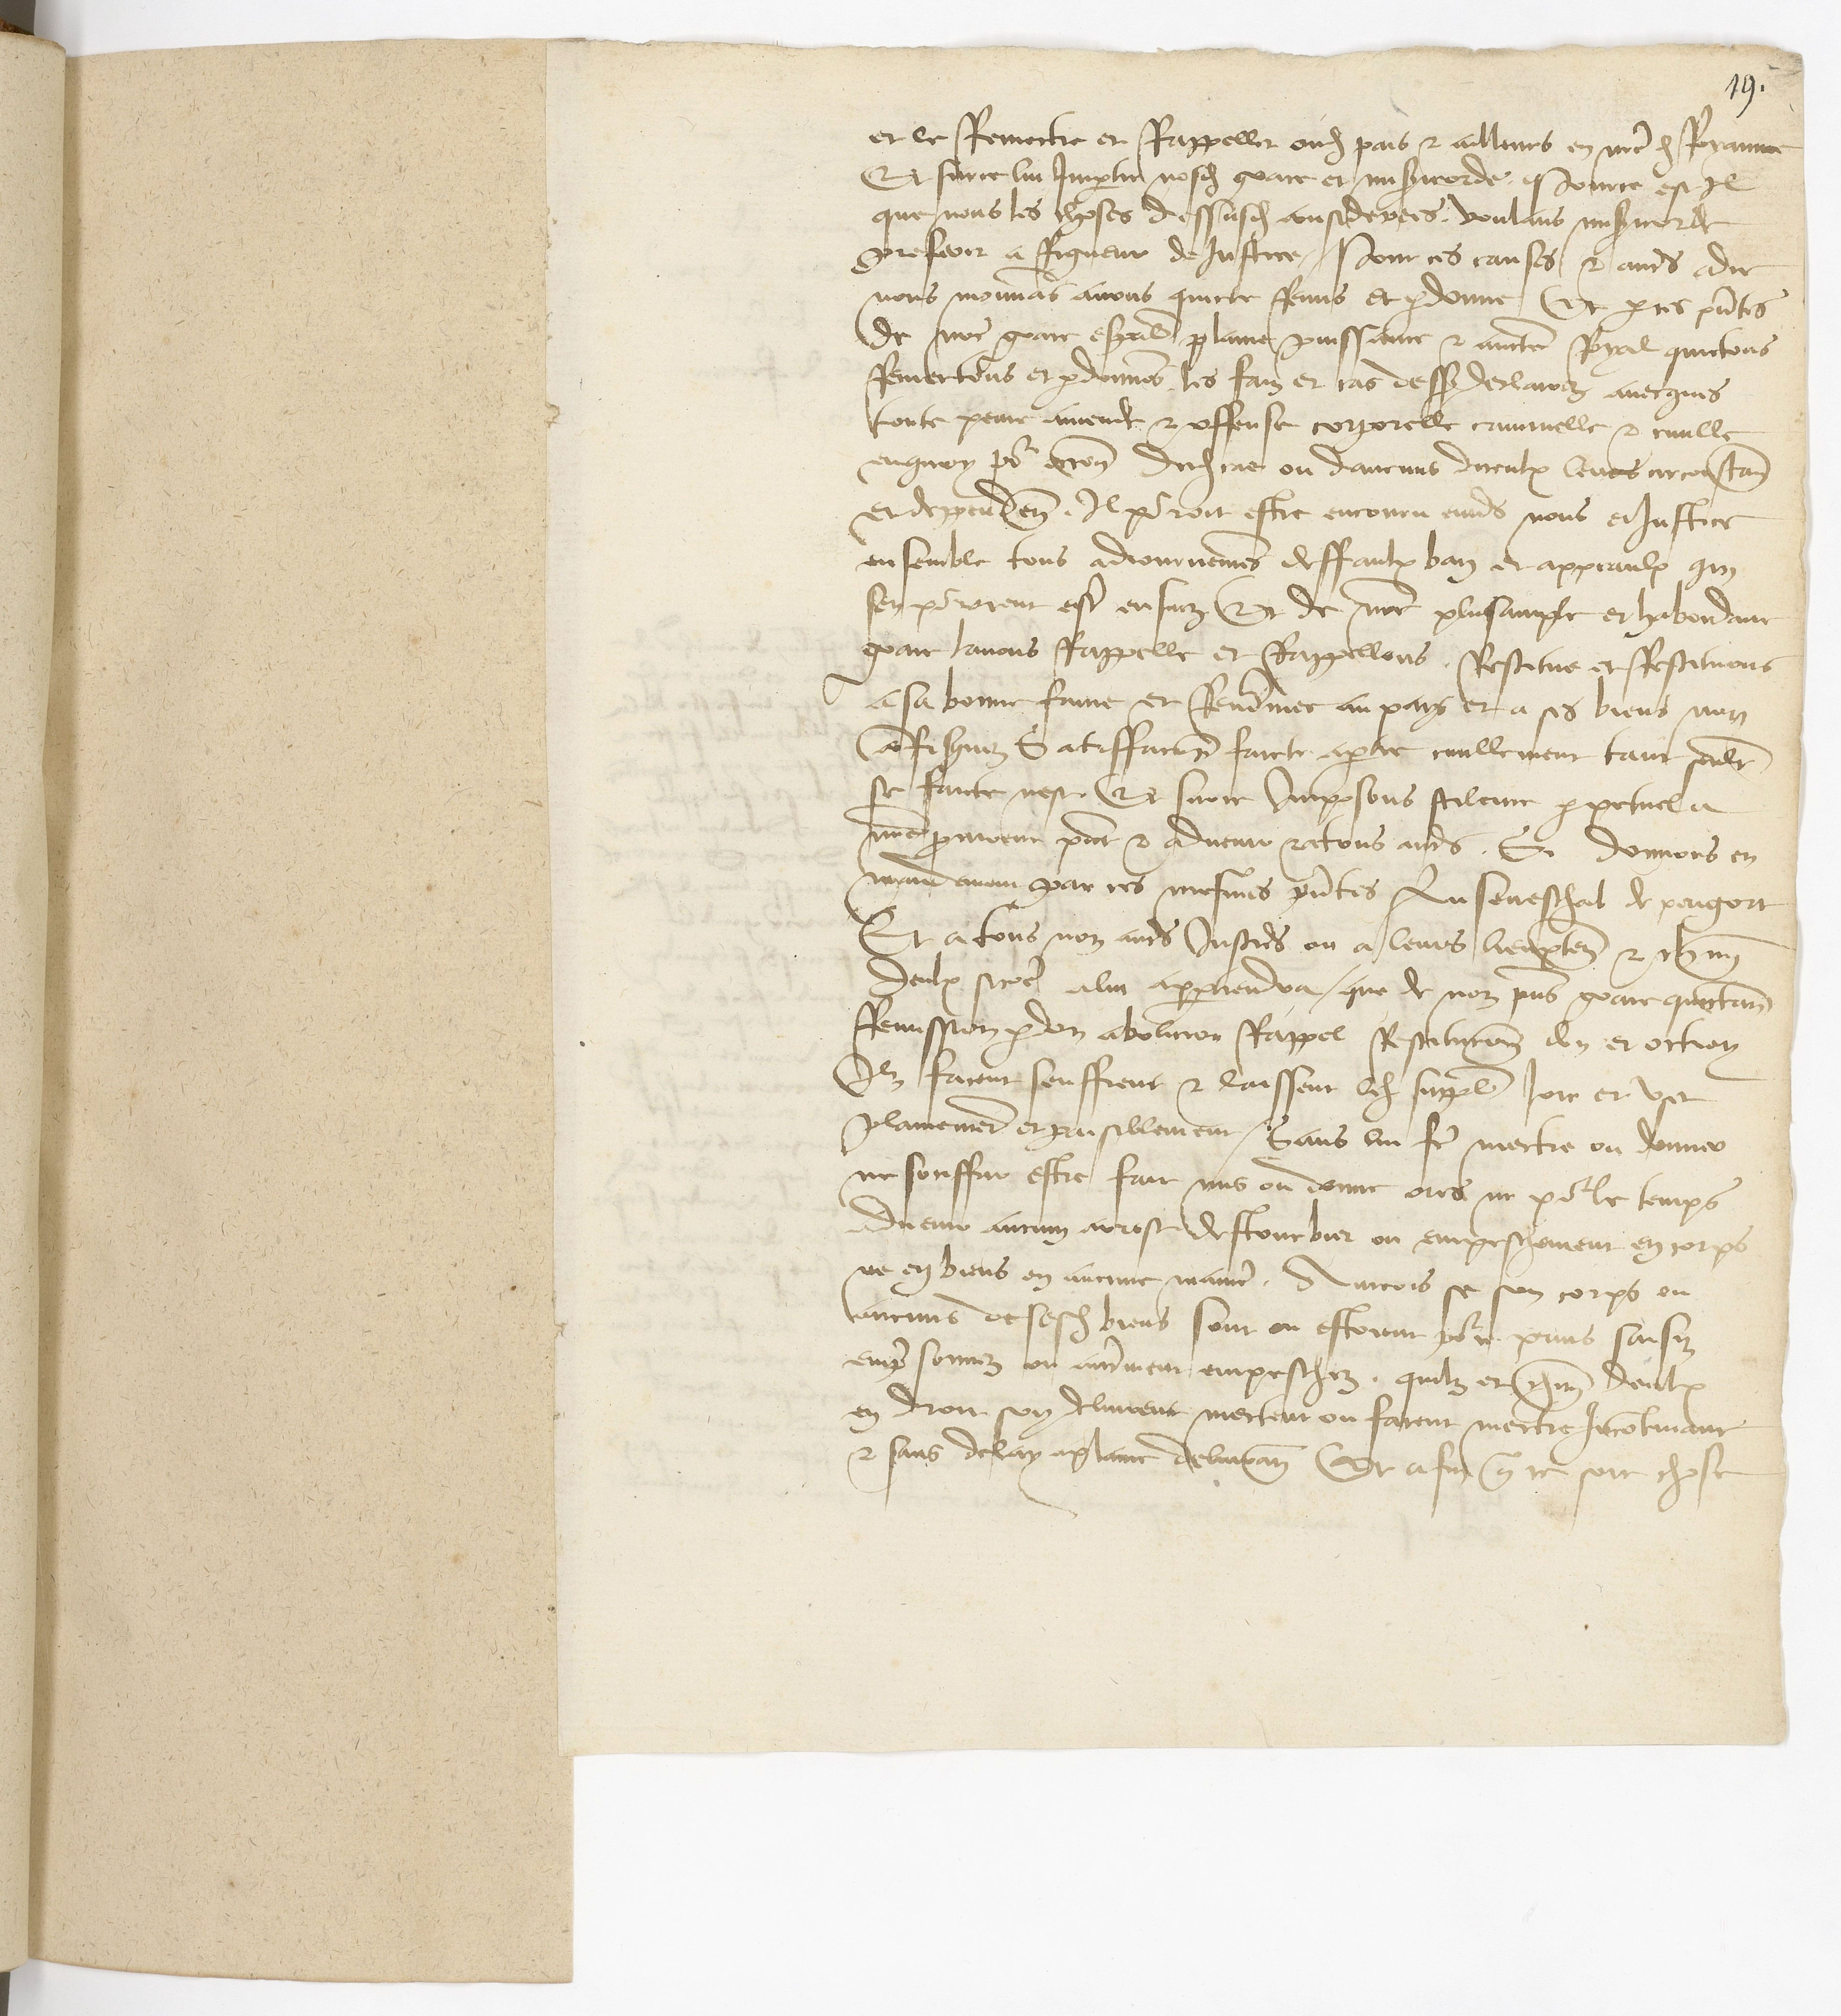 19.
et le Remectre et Rappeller oud pais & ailleurs en nre d Royaume
Et sur ce lui Impartir nosd grace et misericorde. Pource est Il
que nous les choses dessusd considerees. voulans misericorde
preferer a Rigueur de Justice / Pour ces causes & autres ad ce
nous mouvans avons quicte Remis et pdonne Et p ces pntes
de nre grace espal plaine puissance & aucte Royal quictons
Remectons et pdonnons les faiz et cas dessus declairez avecques
toute peine amende & offense corporelle criminelle & civille
en quoy pr occon dud cas ou daucuns diceulx leurs circonstances
et deppenden. Il pourroit estre encouru envers nous et Justice
ensemble tous adiournemens deffaulx ban et appeaulx qui
sen pourroient estre ensuiz Et de nre plus ample et habondant
grace lavons Rappelle et Rappellons. Restitue et Restituons
a sa bonne fame et Renommee au pays et a ses biens non
confisquez Satisffacion faicte a partie civillement tant seulement
se faicte nest. Et sur ce Imposons scilence ppetuel a
nre procureur pnt & advenir & a tous autres. Si donnons en
mandement par ces mesmes pntes Au seneschal de perigort
Et a tous noz autres Justiciers ou a leurs lieuxten & chun
deulx sicomme a lui appartiendra / que de noz pns grace quictance
Remission pdon abolicion Rappel Restitucion don et octroy
Ilz facent seuffrent & laissent led suppl Joir et user
plainement et paisiblement / Sans lui fe mectre ou donner
ne souffrir estre fait mis ou donne ores ne pour le temps
advenir aucun arrest destourbier ou empeschement en corps
ne en biens en aucune maniere. Aincois se son corps ou
aucuns de sesd biens sont ou estoient pource prins saisiz
emprisonnez ou autrement empeschez. quilz et chun deulx
en droit soy delivrent mectent ou facent mectre Incontinant
& sans delay a plaine delivrance Et afin que ce soit chose